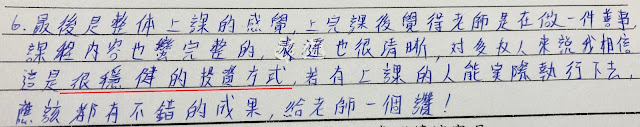 6. 最後是整体上課的感覺,上完課後覺得老師是在做一件善事
課程內容也蠻完整的,表達也很清晰,對多数人來說我相信
這是很穩健的投資方式,若有上課的人能實際執行下去,
應該都有不錯的成果,給老師一個讚!